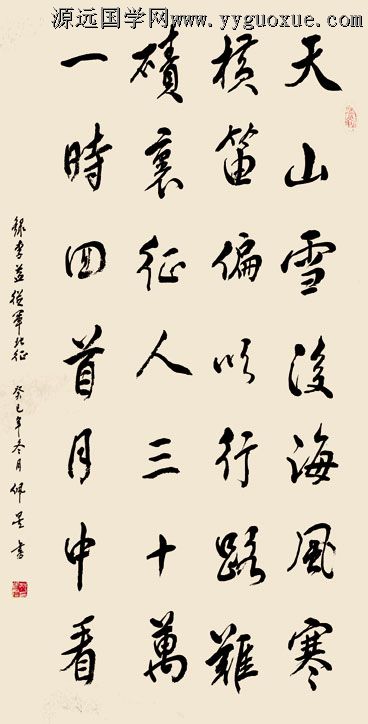 源远国学网 www.yyguoxue.com
天山雪後海風寒
橫笛偏吹行路難
磧裏征人三十萬
一時回首月中看
錄李益從軍北征 癸巳年冬月佩書